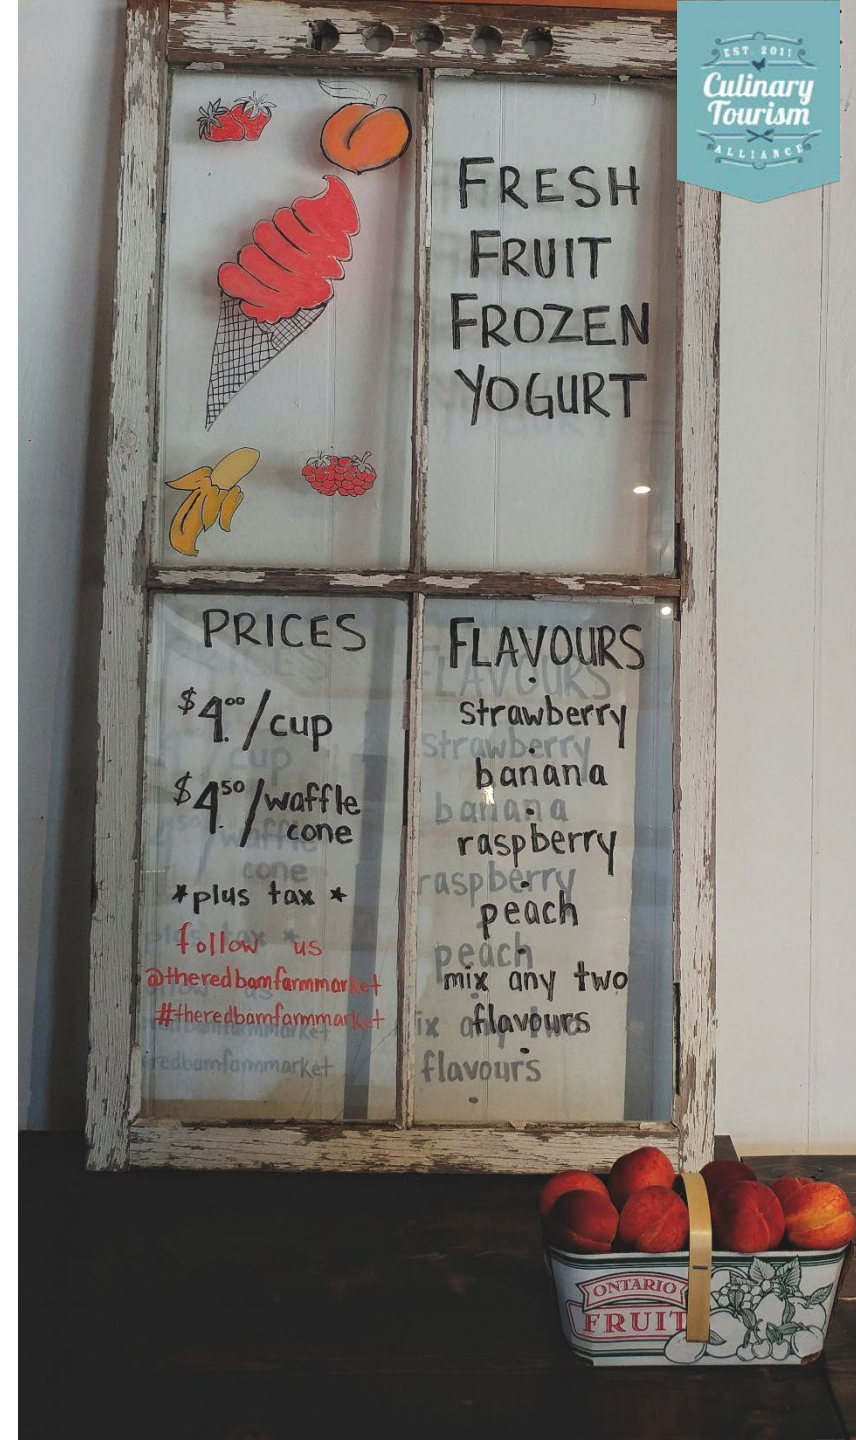 EST. 2011
Culinary
Tourism
ALLIANCE
FRESH
FRUIT
FROZEN
YOGURT
PRICES
$4.00/cup
$4.50/waffle
cone
*plus tax*
follow us
@theredbarnfarmmarket
#theredbarnfarmmarket
FLAVOURS
strawberry
banana
raspberry
peach
mix any two
flavours
ONTARIO
FRUIT